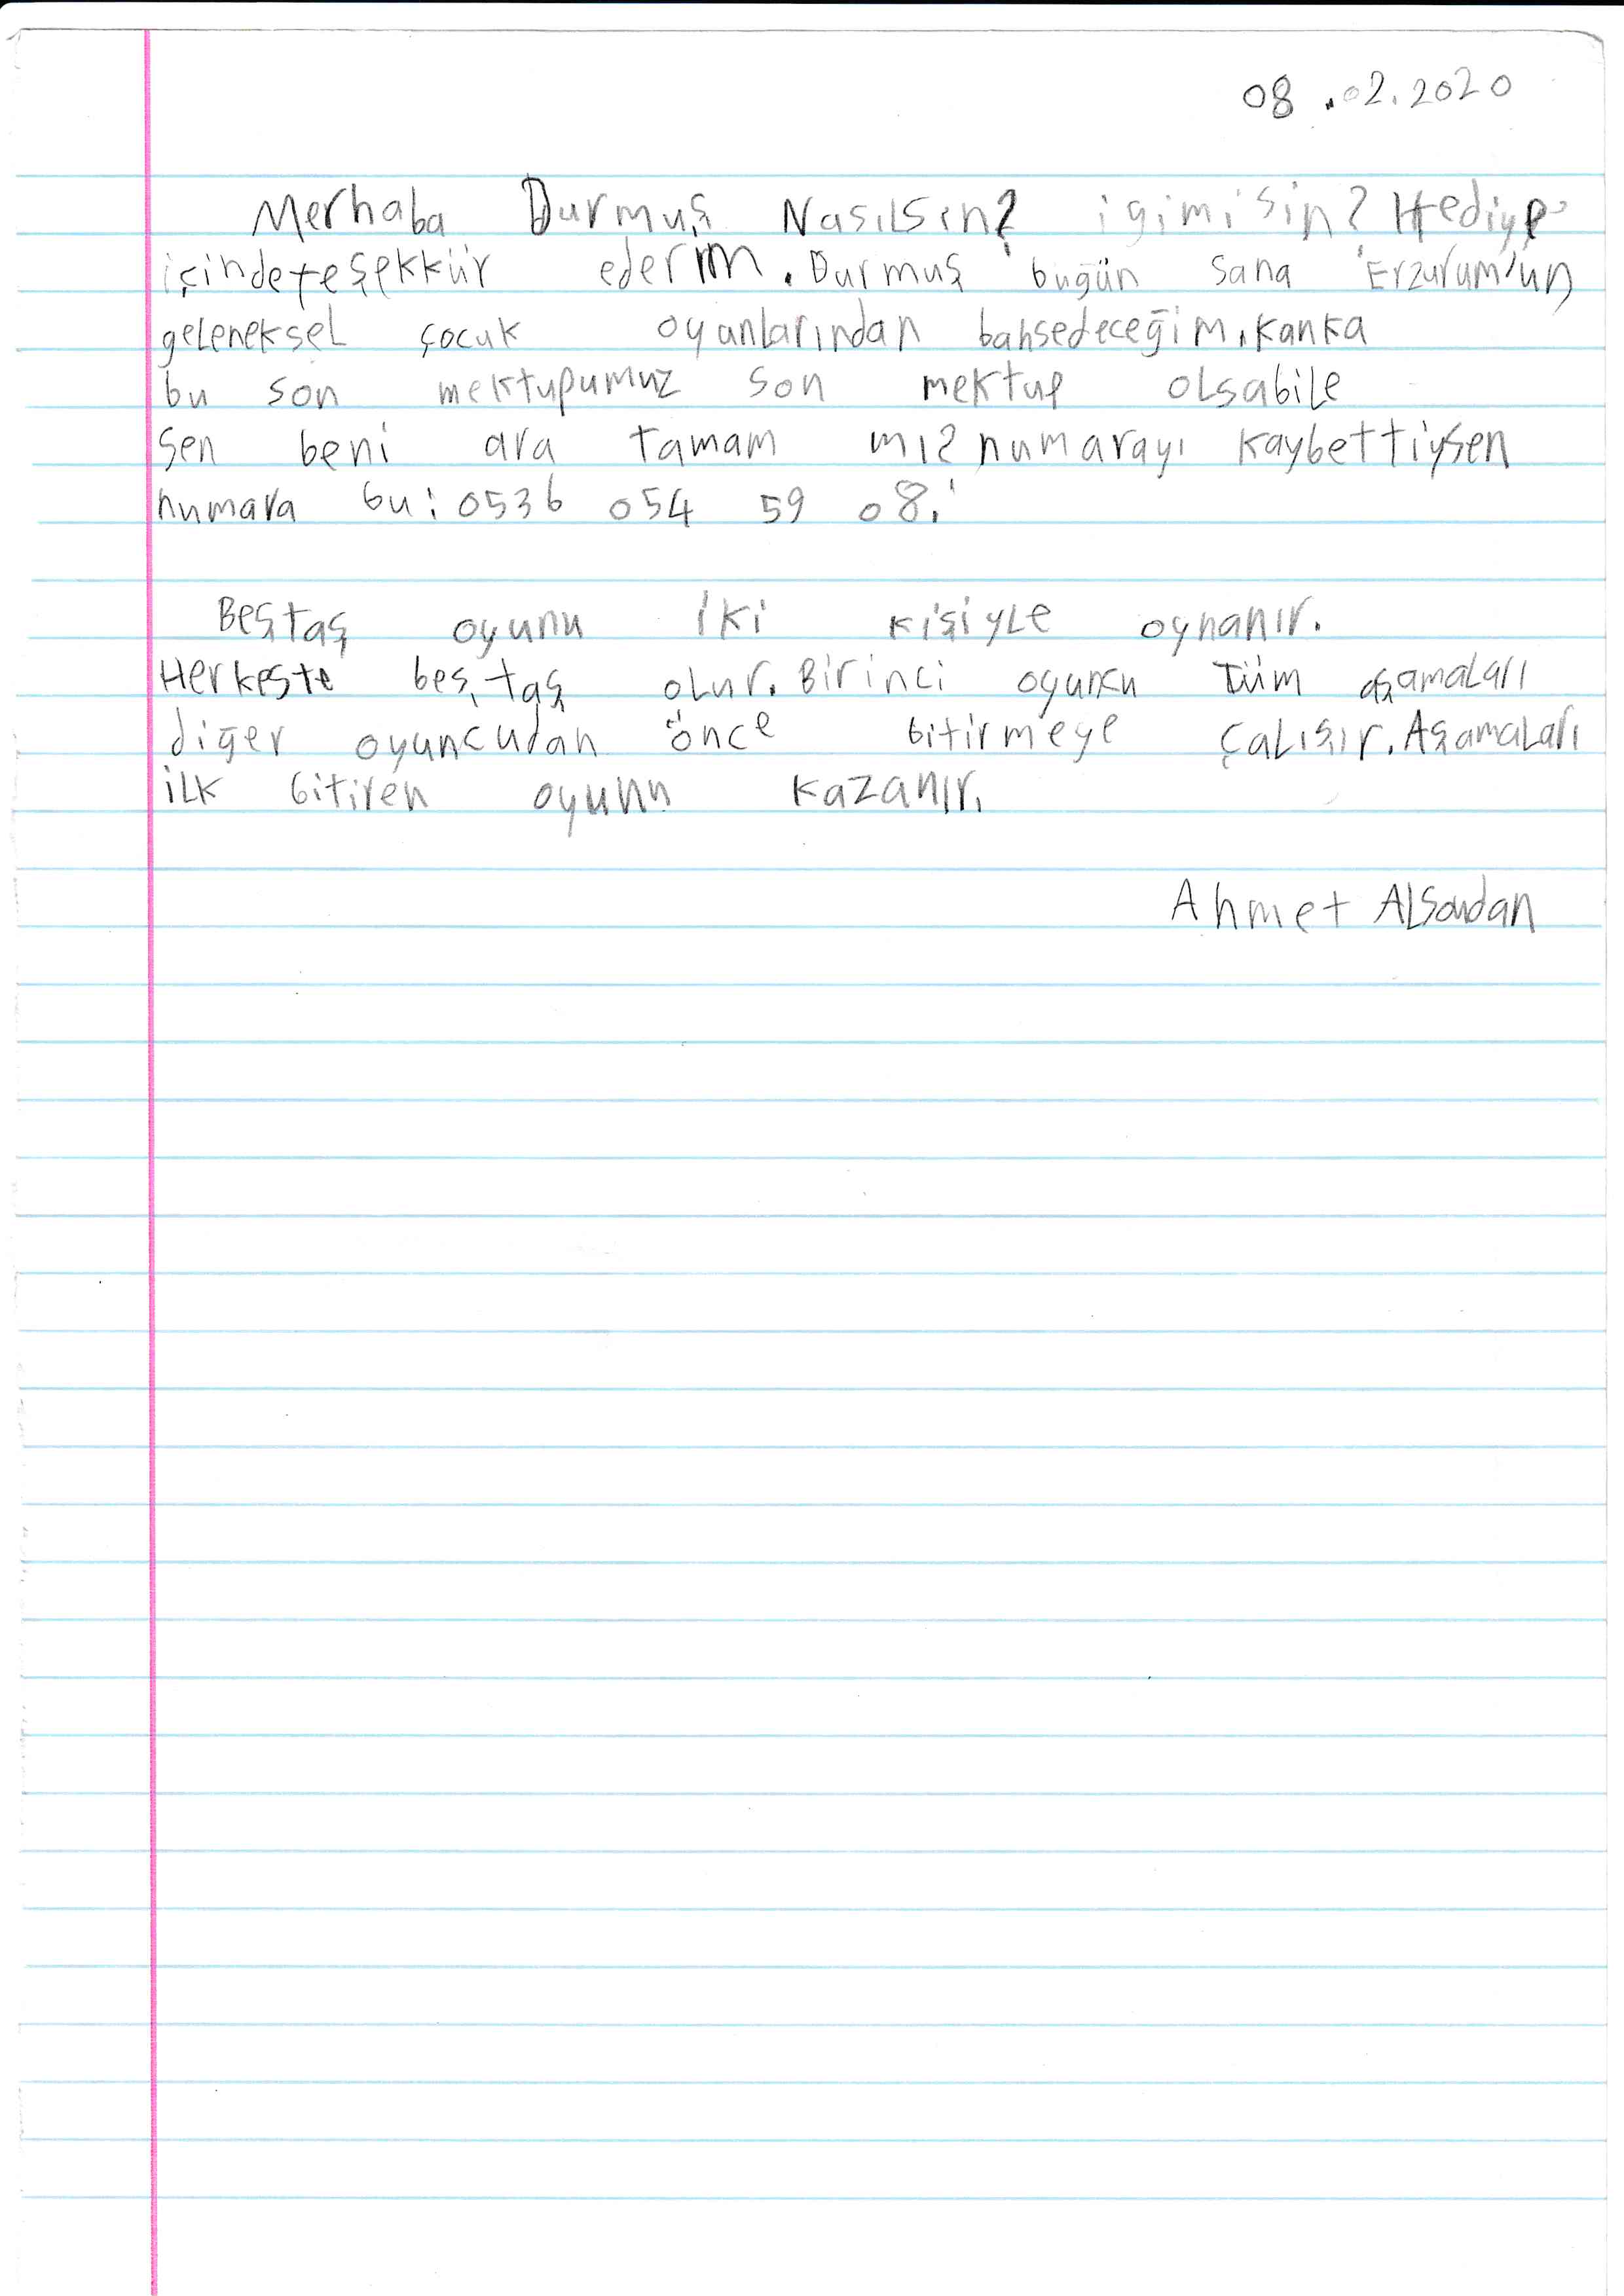 08.02.2020
Merhaba Durmuş Nasılsın? iyimisin? Hediye
içindeteşekkür ederim. Durmuş bugün sana Erzurum'un
geleneksel çocuk oyanlarından bahsedeceğim. Kanka
bu son mektupumuz son mektup olsabile
sen beni ara tamam mı? numarayı kaybettiysen
numara bu: 0536 054 59 08.
Beştaş oyunu iki kişiyle oynanır.
Herkeste beş taş olur. Birinci oyuncu tüm aşamaları
diğer oyuncudan önce bitirmeye çalışır. Aşamaları
ilk bitiren oyunu kazanır.
Ahmet